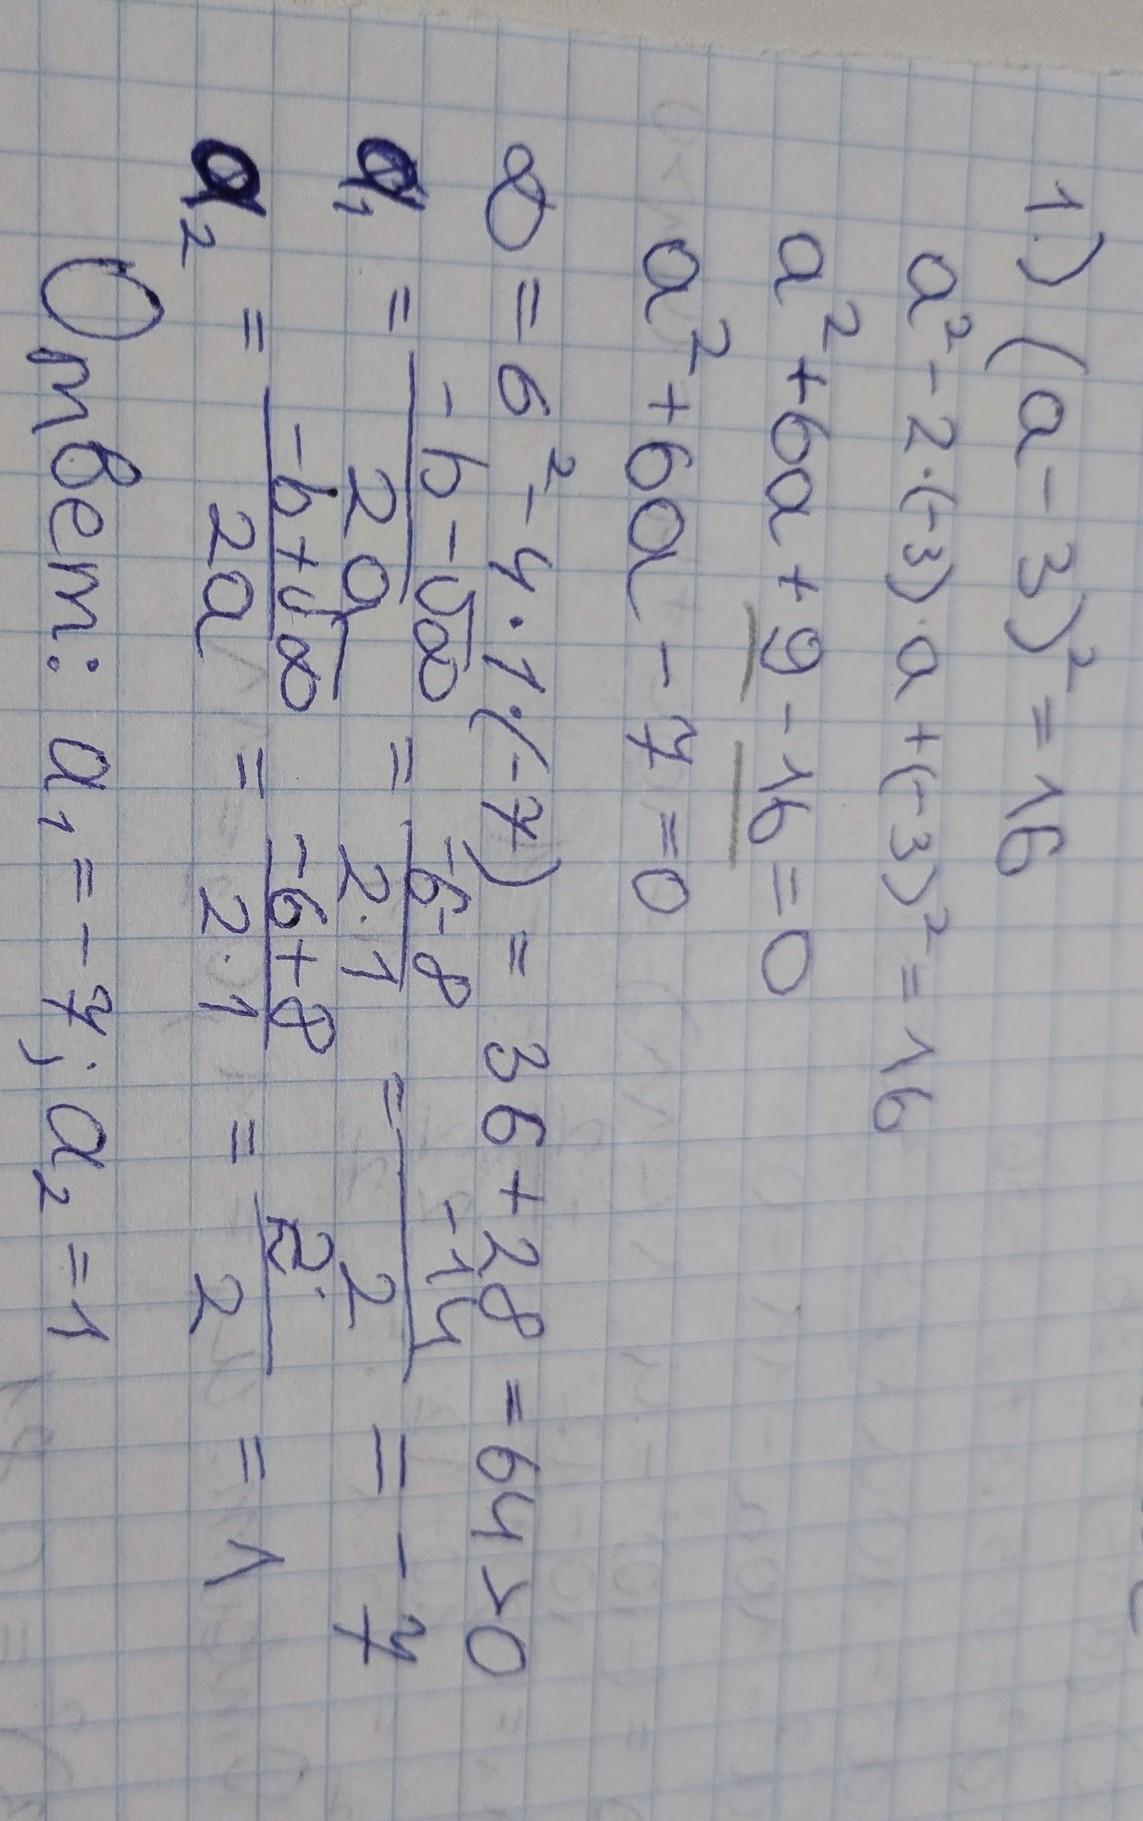 1.) (a-3)² = 16
a² - 2·(-3)·a + (-3)² = 16
a² + 6a + 9 - 16 = 0
a² + 6a - 7 = 0
∞ = 6² - 4·1·(-7) = 36 + 28 = 64 > 0
a₁ = (-b - √∞)/(2a) = (-6-8)/(2·1) = (-14)/2 = -7
a₂ = (-b + √∞)/(2a) = (-6+8)/(2·1) = 2/2 = 1
Ответ: a₁ = -7; a₂ = 1